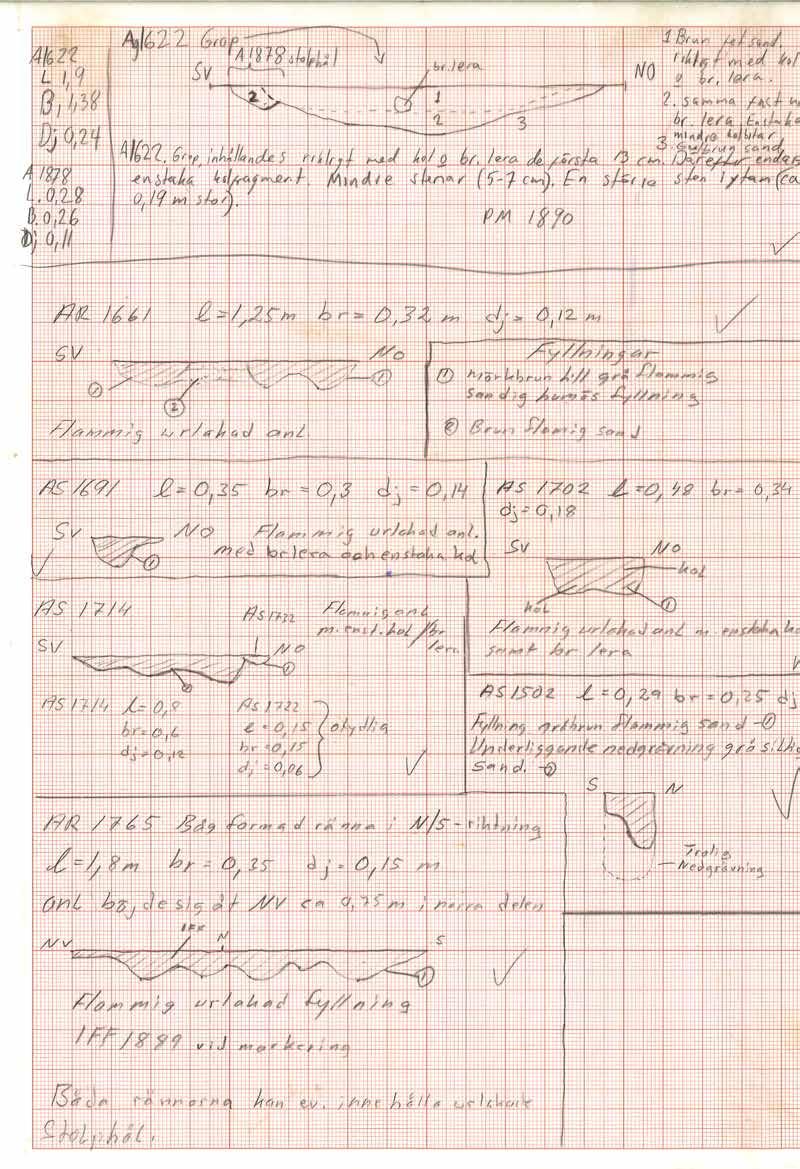 A1622
L 1,9
B, 1,38
Dj 0,24
A 1878
L. 0,28
B. 0,26
Dj 0,11
Ag1622 Grop
A1878 stolphål
SV
br.lera
NO
2
1
2
3
1 Brun fet sand.
rikligt med kol
o br. lera.
2. samma fast
br. lera. Enstaka
mindre kolbitar
3. Gulbrun sand
A1622. Grop, innhållandes rikligt med kol o br. lera de första 13 cm. Därefter endast
enstaka kolfragment Mindre stenar (5-7 cm). En större sten i ytan (ca
0,19 m stor).
PM 1890
AR 1661 l=1,25m br=0,32 m dj= 0,12 m
SV
NO
1
1
2
Flammig urlakad anl.
Fyllningar
1 Mörkbrun till grå flammig
sandig humös fyllning
2 Brun flamig sand
AS 1691 l=0,35 br=0,3 dj=0,14
SV
NO
1
Flammig urlakad anl.
med br lera och enstaka kol
AS 1702 l=0,48 br=0,34
dj=0,18
SV
NO
kol
kol
1
Flammig urlakad anl m. enstaka ko
samt br lera
AS 1714
AS1722
Flammig anl
m. enst. kol/br
lera
SV
NO
1
AS1714 l=0,8
br=0,6
dj=0,12
AS 1722
l=0,15
br=0,15
dj=0,06
otydlig
AS1502 l=0,29 br=0,25 dj
Fyllning gråbrun flammig sand -1
Underliggande nedgrävning grå siltig
sand. -2
S
N
Trolig
Nedgrävning
AR 1765 Bågformad ränna i N/S-riktning
l=1,8m br=0,35 dj=0,15 m
anl böjde sig åt NV ca 0,75 m i norra delen
NV
IFF
N
S
1
Flammig urlakad fyllning
IFF 1889 vid markering
Båda rännorna kan ev. innehålla urlakade
Stolphål.